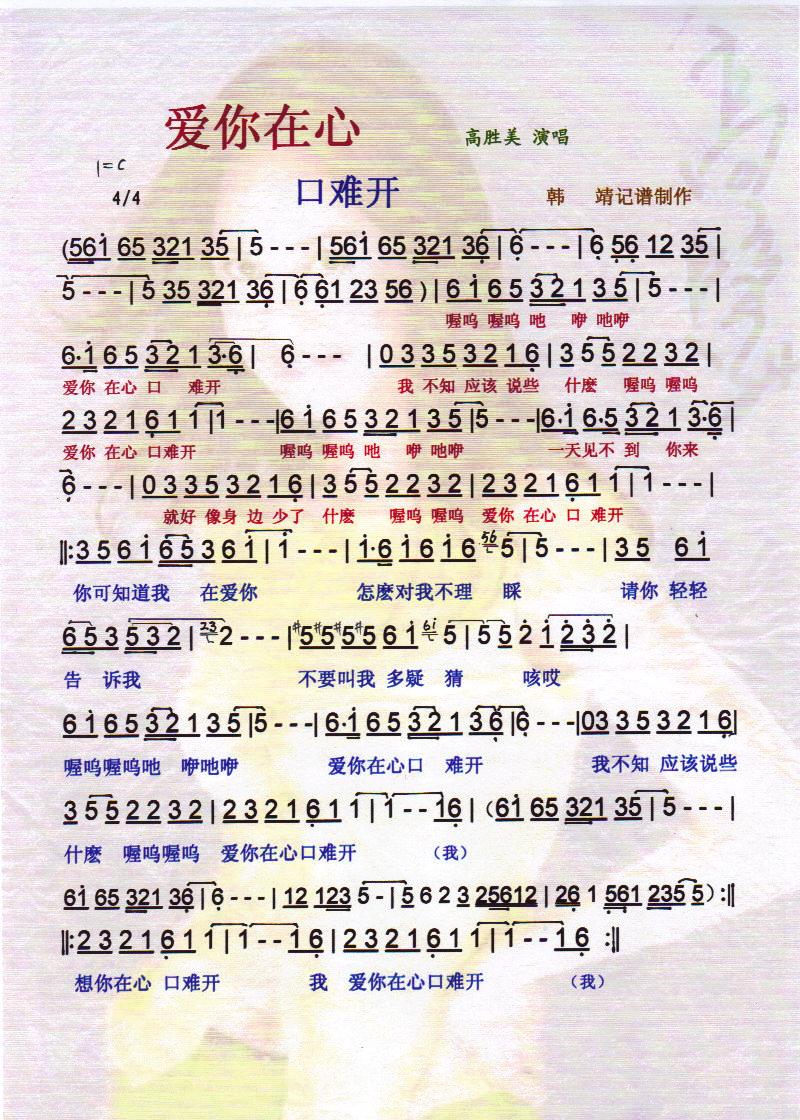 爱你在心
高胜美 演唱
1=C
4/4
口难开
韩 靖记谱制作
(561 65 321 35 | 5 - - - | 561 65 321 36 | 6 - - - | 6 56 12 35 |
5 - - - | 5 35 321 36 | 6 61 23 56 ) | 6 1 6 5 3 2 1 3 5 | 5 - - - |
喔呜 喔呜 吔 咿 吔咿
6·1 6 5 3 2 1 3·6 | 6 - - - | 0 3 3 5 3 2 1 6 | 3 5 5 2 2 3 2 |
爱你 在心 口 难开 我 不知 应该 说些 什麽 喔呜 喔呜
2 3 2 1 6 1 1 | 1 - - - | 6 1 6 5 3 2 1 3 5 | 5 - - - | 6·1 6·5 3 2 1 3·6 |
爱你 在心 口难开 喔呜 喔呜 吔 咿 吔咿 一天见不 到 你来
6 - - - | 0 3 3 5 3 2 1 6 | 3 5 5 2 2 3 2 | 2 3 2 1 6 1 1 | 1 - - - |
就好 像身 边 少了 什麽 喔呜 喔呜 爱你 在心 口 难开
‖: 3 5 6 1 6 5 3 6 1 | 1 - - - | 1·6 1 6 1 6 56 5 | 5 - - - | 3 5 6 1
你可知道我 在爱你 怎麽对我不理 睬 请你 轻轻
6 5 3 5 3 2 | 23 2 - - - | #5 #5 #5 #5 6 1 61 5 | 5 5 2 1 2 3 2 |
告 诉我 不要叫我 多疑 猜 咳哎
6 1 6 5 3 2 1 3 5 | 5 - - - | 6·1 6 5 3 2 1 3 6 | 6 - - - | 0 3 3 5 3 2 1 6 |
喔呜喔呜吔 咿吔咿 爱你在心口 难开 我不知 应该说些
3 5 5 2 2 3 2 | 2 3 2 1 6 1 1 | 1 - - 1 6 | (61 65 321 35 | 5 - - - |
什麽 喔呜喔呜 爱你在心口难开 （我）
61 65 321 36 | 6 - - - | 12 123 5 - | 5 6 2 3 25612 | 26 1 561 235 5 ) :‖
‖: 2 3 2 1 6 1 1 | 1 - - 1 6 | 2 3 2 1 6 1 1 | 1 - - 1 6 :‖
想你在心 口难开 我 爱你在心口难开 （我）